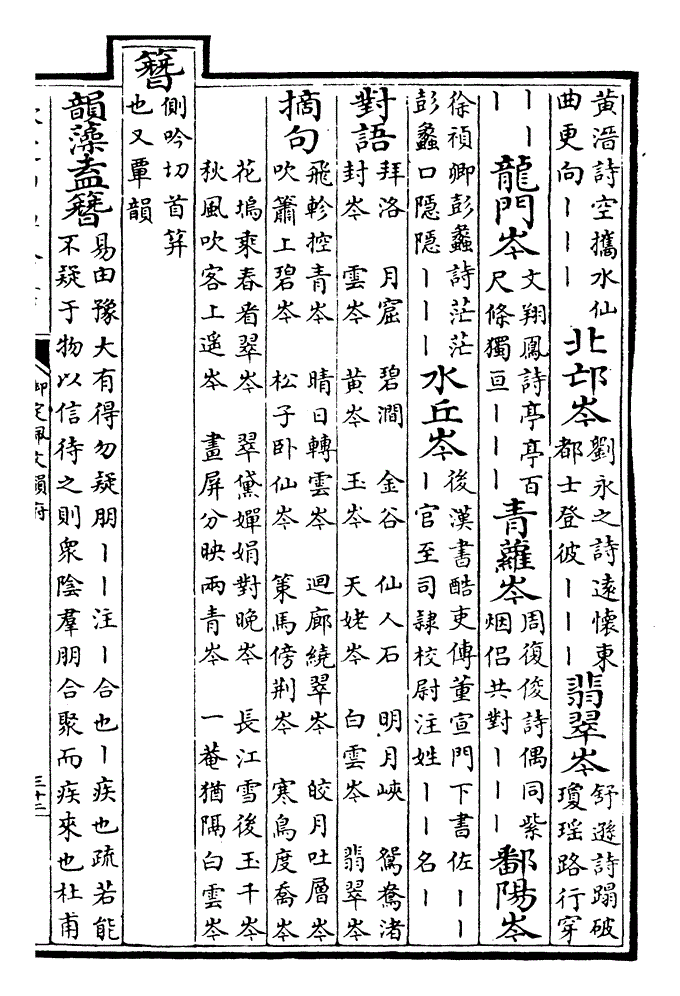 黃溍詩空攜水仙
曲更向丨丨丨
北邙岑
劉永之詩遠懷東
都士登彼丨丨丨
翡翠岑
舒遜詩蹋破
瓊瑶路行穿
丨丨丨
龍門岑
文翔鳳詩亭亭百
尺條獨亘丨丨丨
青蘿岑
周復俊詩偶同紫
烟侣共對丨丨丨
鄱陽岑
徐禎卿彭蠡詩茫茫
彭蠡口隠隠丨丨丨
水丘岑
後漢書酷吏傳董宣門下書佐丨丨
丨官至司隷校尉注姓丨丨名丨
對語
拜洛　月窟　碧澗　金谷　仙人石　明月峽　鴛鴦渚
封岑　雲岑　黃岑　玉岑　天姥岑　白雲岑　翡翠岑
摘句
飛軫控青岑　晴日轉雲岑　迴廊繞翠岑　皎月吐層岑
吹簫上碧岑　松子卧仙岑　策馬傍荆岑　寒鳥度喬岑
花塢乘春看翠岑　翠黛嬋娟對晚岑　長江雪後玉千岑
秋風吹客上遥岑　畫屏分映兩青岑　一菴猶隔白雲岑
簪
側吟切首筓
也又覃韻
韻藻
盍簪
易由豫大有得勿疑朋丨丨注丨合也丨疾也疏若能
不疑于物以信待之則衆陰羣朋合聚而疾來也杜甫
御定佩文韻府
三十二